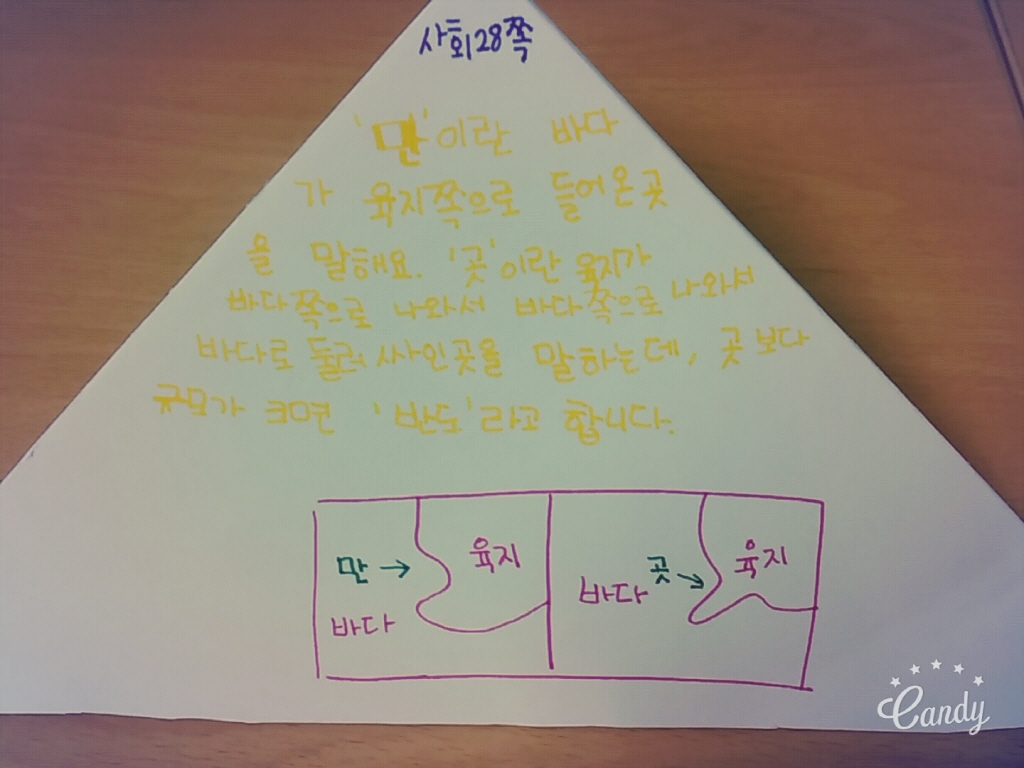 사회28쪽
'만'이란 바다
가 육지쪽으로 들어온곳
을 말해요. '곶'이란 육지가
바다쪽으로 나와서 바다쪽으로 나와서
바다로 둘러 싸인곳을 말하는데, 곶보다
규모가 크면 '반도'라고 합니다.
만→ 육지
바다
바다 곶→ 육지
Candy